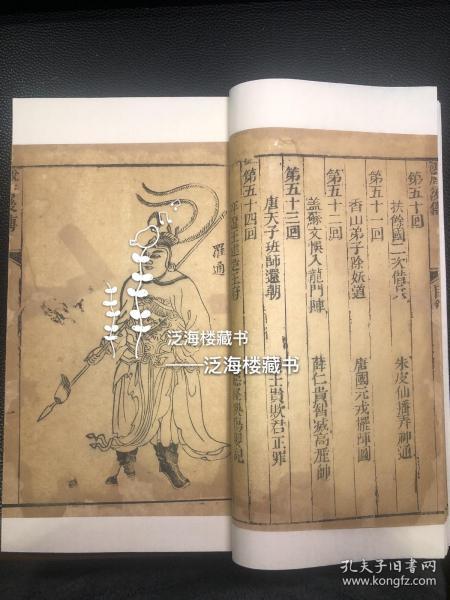 說唐後傳
目錄
第五十回
扶餘國二次借兵
朱皮仙播弄神通
第五十一回
香山弟子除妖道
唐國元戎擺陣圖
第五十二回
盖蘇文悞入龍門陣
薛仁貴智滅高麗師
第五十三回
唐天子班師還朝
士貴欺君正罪
第五十四回
羅通
泛海楼藏书
——泛海楼藏书
孔夫子旧书网
www.kongfz.com